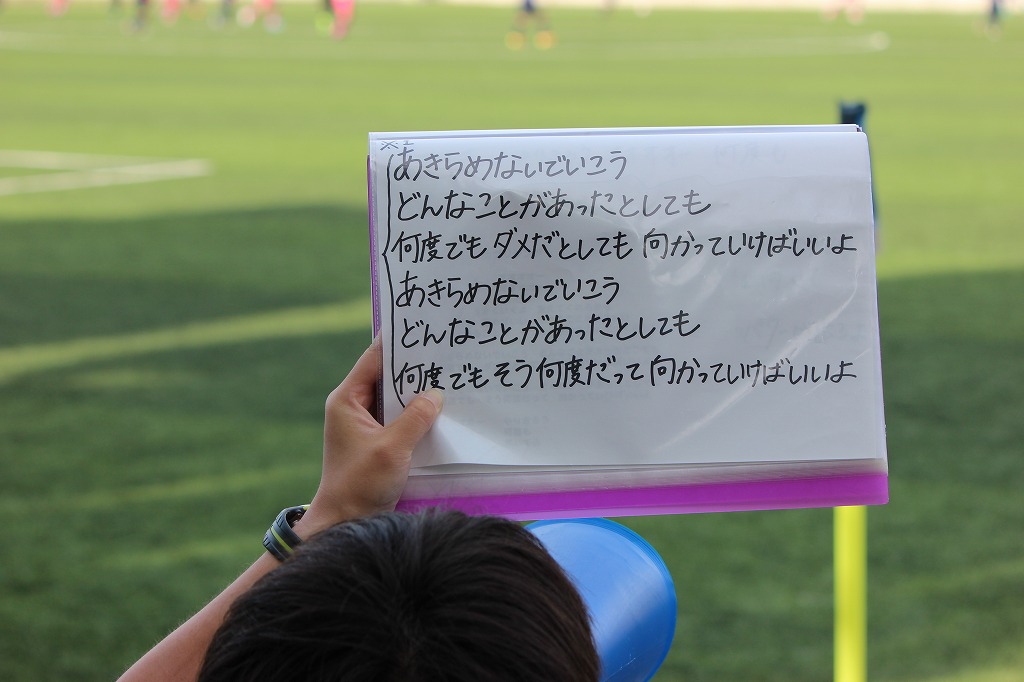 あきらめないでいこう
どんなことがあったとしても
何度でも ダメだとしても 向かっていけばいいよ
あきらめないでいこう
どんなことがあったとしても
何度でも そう何度だって 向かっていけばいいよ